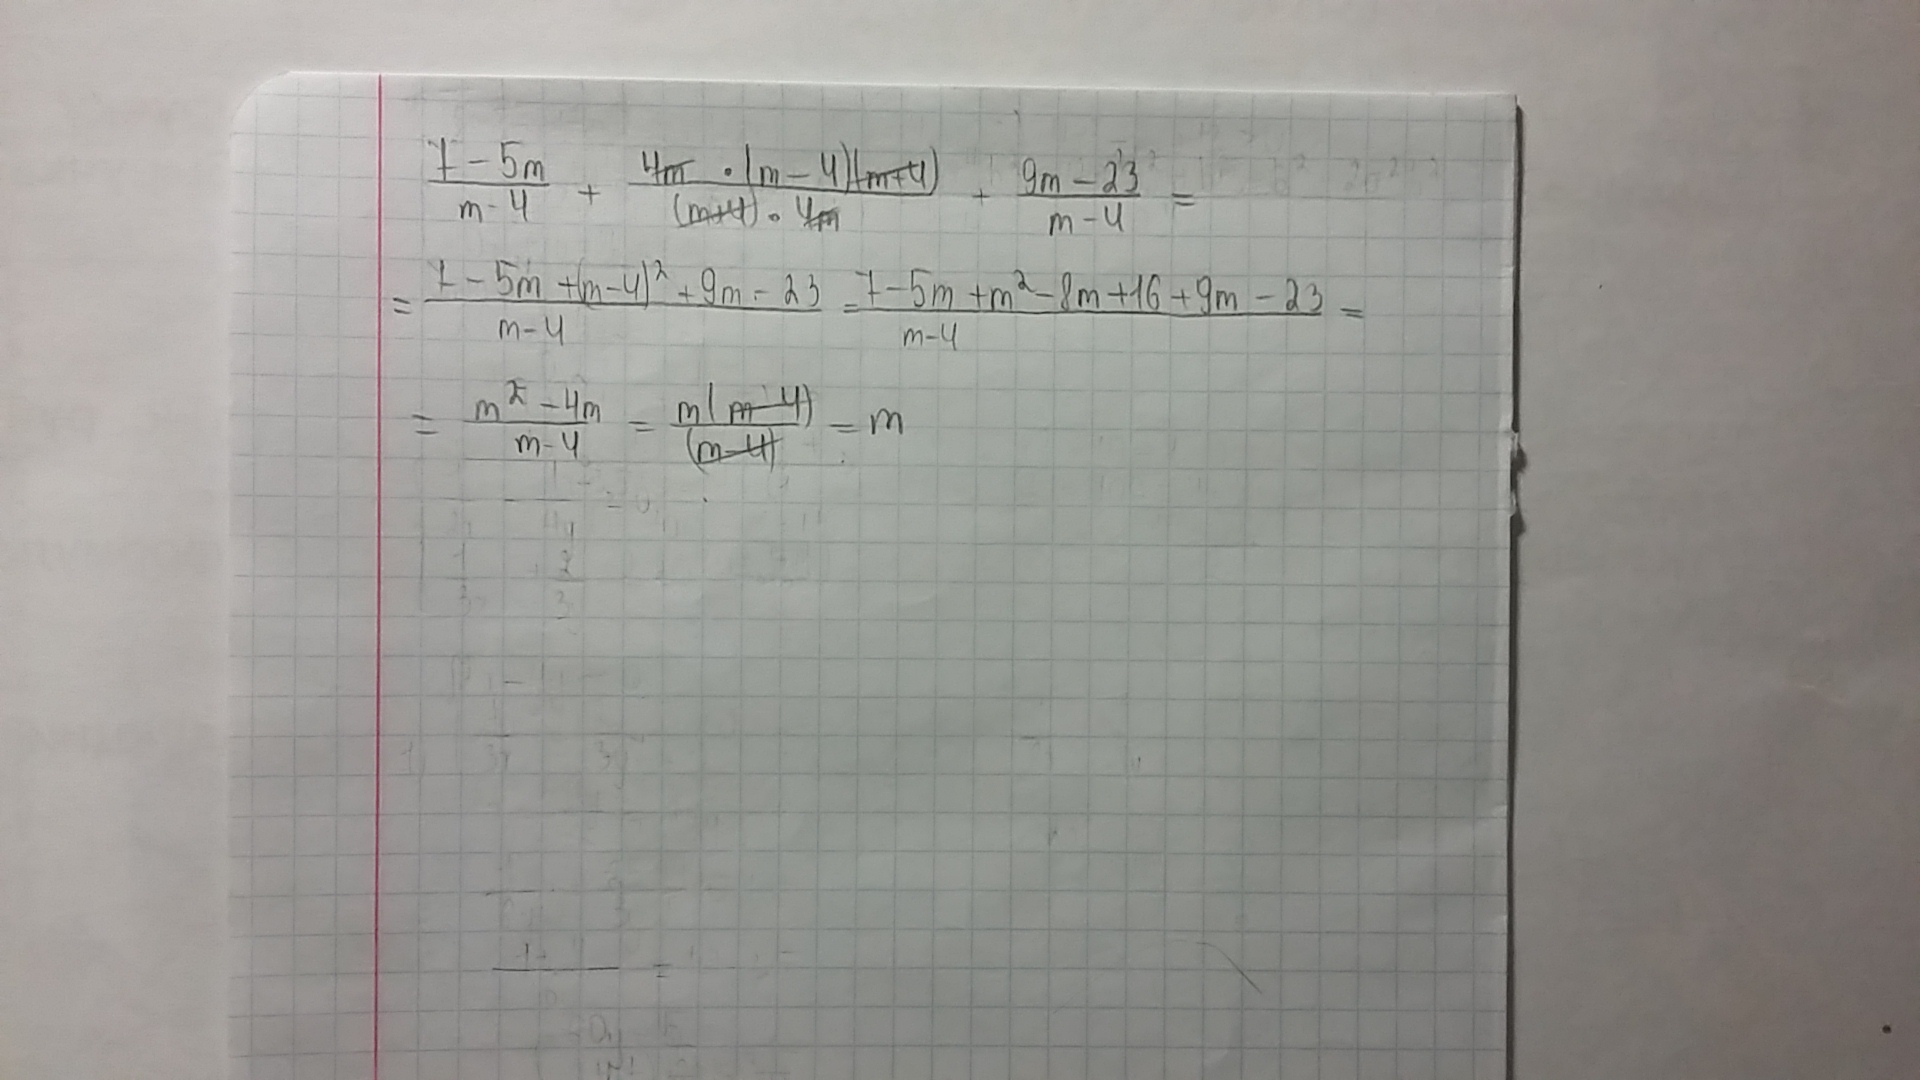 (7 - 5m)/(m - 4) + (4m · (m - 4)(m+4))/((m+4) · 4m) + (9m - 23)/(m - 4) =
= (7 - 5m + (m-4)² + 9m - 23)/(m - 4) = (7 - 5m + m² - 8m + 16 + 9m - 23)/(m - 4) =
= (m² - 4m)/(m - 4) = (m(m - 4))/((m - 4)) = m